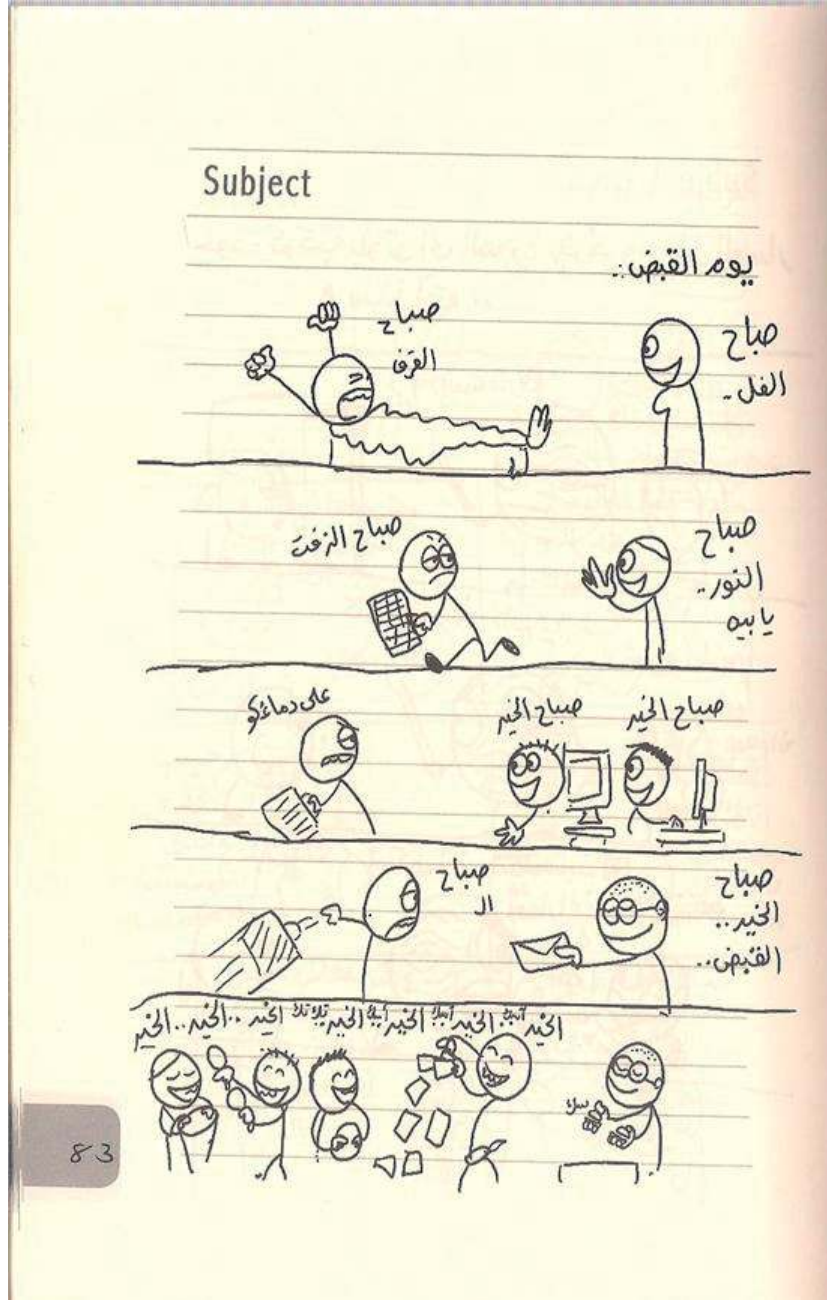 Subject
يوم القبض..
صباح
الفل..
صباح
القرف
صباح
النور..
يا بيه
صباح الزفت
صباح الخير
صباح الخير
على دماغكو
صباح
الخير..
القبض..
صباح
الـ
الخير الخير الخير الخير الخير .. الخير .. الخير
83